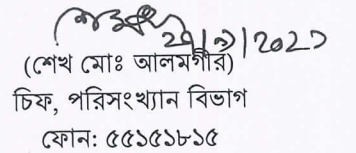 ২৭/৯/২০২১
(শেখ মোঃ আলমগীর)
চিফ, পরিসংখ্যান বিভাগ
ফোন: ৫৫১৫১৮১৫